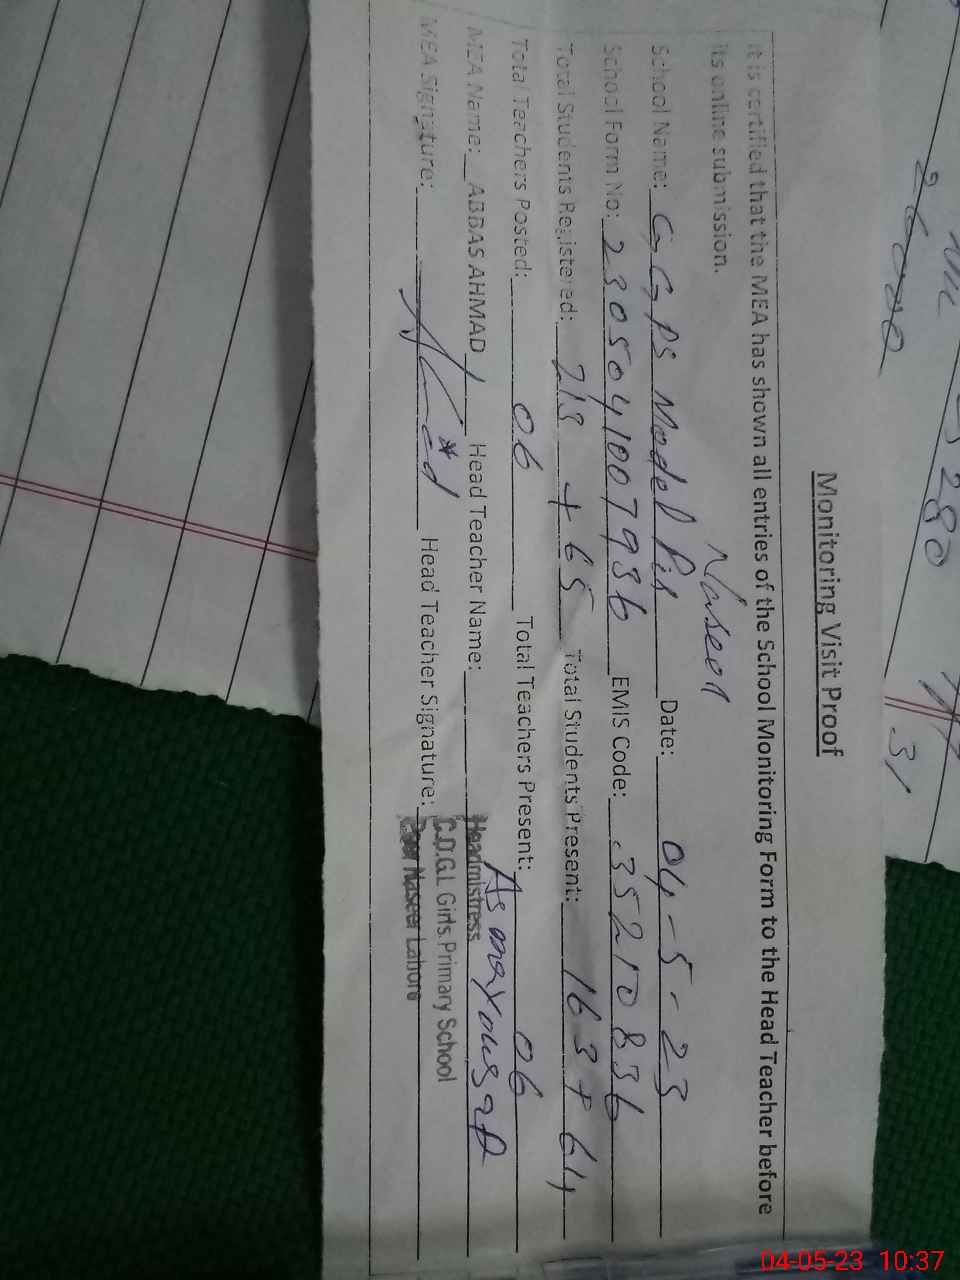 Monitoring Visit Proof
It is certified that the MEA has shown all entries of the School Monitoring Form to the Head Teacher before
its online submission.
School Name: GGPS Model Date: 04-5-23
School Form No: 2305041007936 EMIS Code: 35210836
Total Students Registered: 213 + 65 Total Students Present: 163 + 64
Total Teachers Posted: 06 Total Teachers Present: 06
MEA Name: ABBAS AHMAD Head Teacher Name:
MEA Signature: Head Teacher Signature:
Headmistress
C.D.G.L Girls Primary School
Naseer Lahore
26000
280
31
04-05-23 10:37